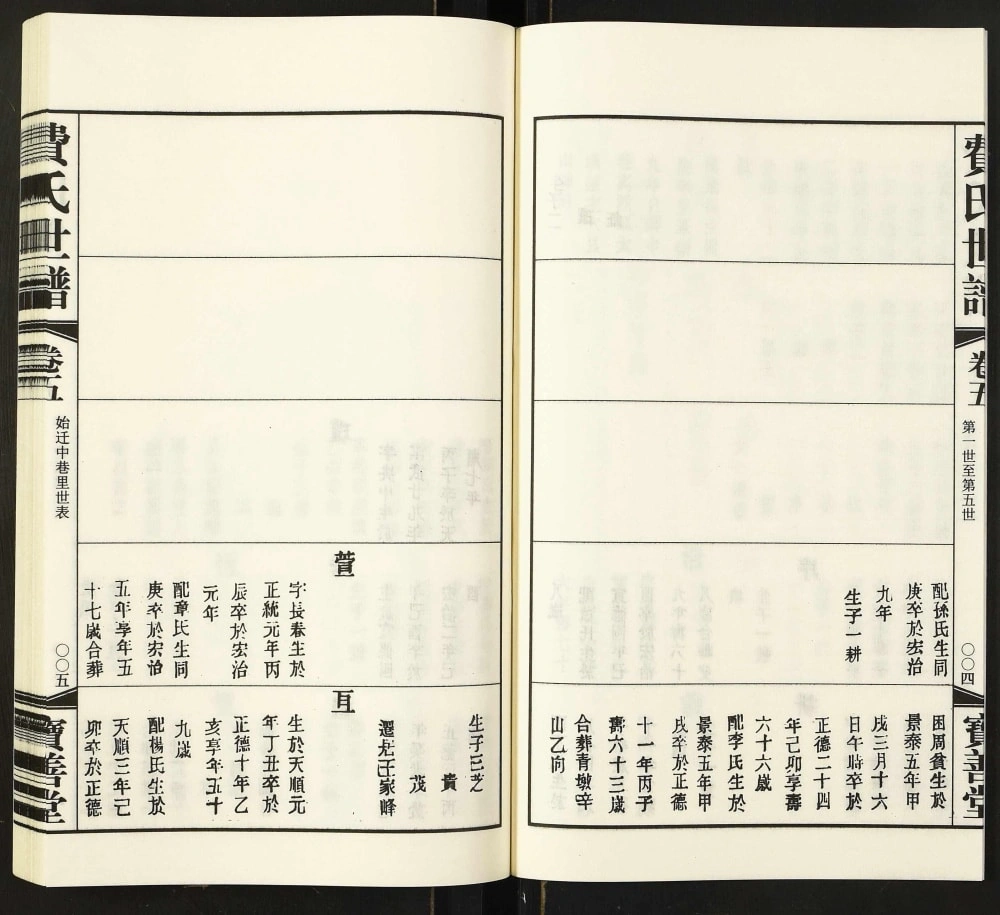 費氏世譜
卷五
第一世至第五世
〇〇四
寶善堂
配孫氏生同
庚卒於宏治
九年
生子一耕
困周貧生於
景泰五年甲
戌三月十六
日午時卒於
正德二十四
年己卯享壽
六十六歲
配李氏生於
景泰五年甲
戌卒於正德
十一年丙子
壽六十三歲
合葬青墩辛
山乙向
生子三芝
貴
茂
遷居王家峰
萱
字長春生於
正統元年丙
辰卒於宏治
元年
配章氏生同
庚卒於宏治
五年享年五
十七歲合葬
亙
生於天順元
年丁丑卒於
正德十年乙
亥享年五十
九歲
配楊氏生於
天順三年己
卯卒於正德
費氏世譜
卷五
始迁中巷里世表
〇〇五
寶善堂